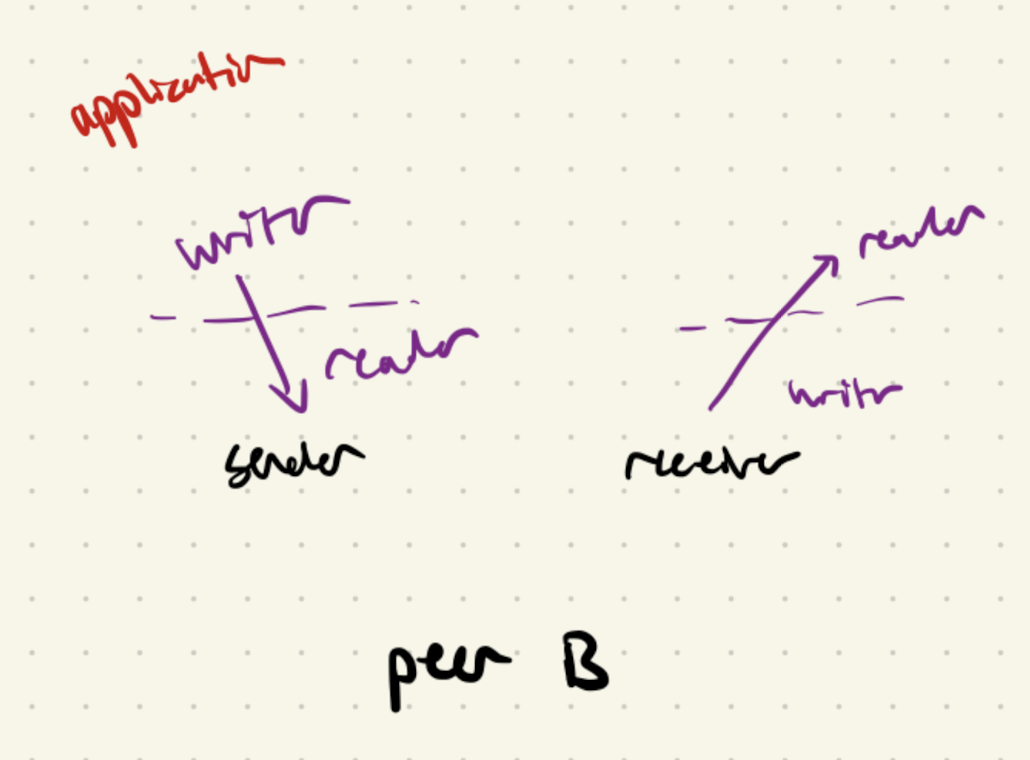 application
writer
reader
reader
writer
sender
receiver
peer B